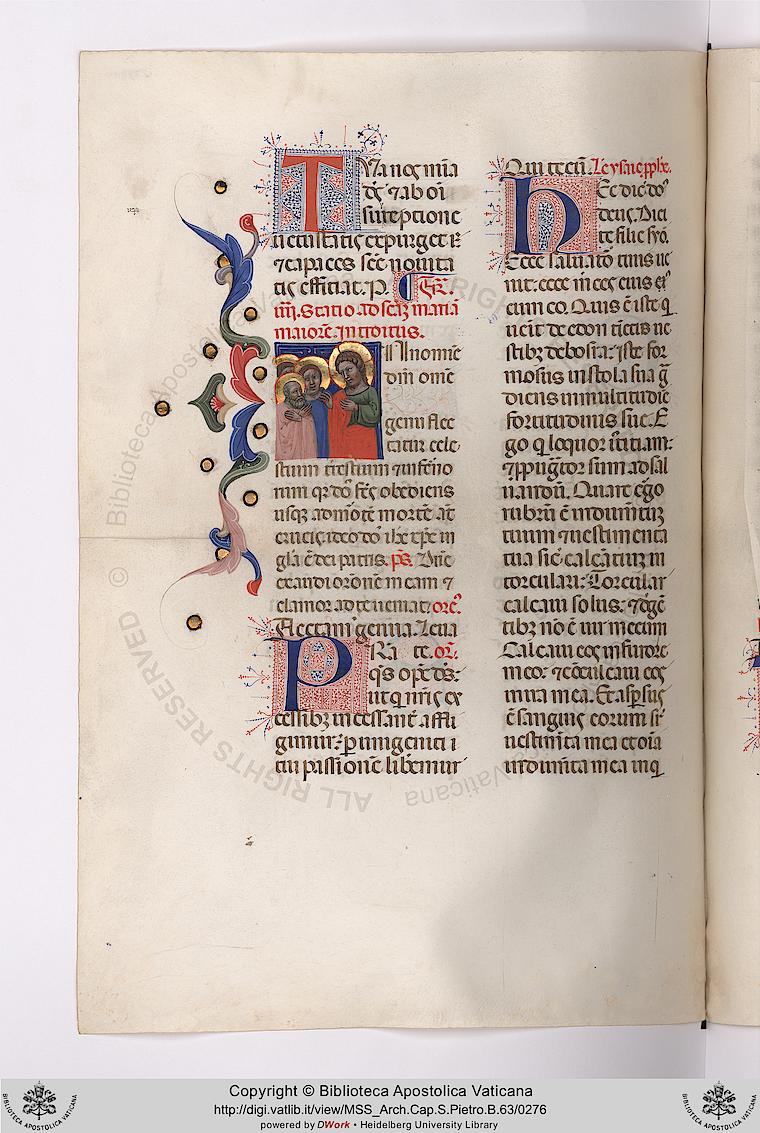 Tua nos mia
ds ⁊ ab oi
surreptione
uetustatis expurget ⁊
⁊ capaces sce nouita
tis efficiat. P. Fer.
iiii. Statio ad scam mariam
maiore. Introitus.
In nomie
dni ome
genu flec
tatur cele
stium trestrium ⁊ inferno
rum qr dns fcs obediens
usq; ad morte morte at
crucis ideo dns ihc xpc in
gla e dei patris. ps. Dne
exaudi orone meam ⁊
clamor ad te ueniat. orem.
Flectam genua. Leua
PRa te. or.
qs opc ds:
ut q nris ex
cessibz incessant affli
gimur: p unigeniti
tui passione liberemur
Qui tecu. Lc ysaie pphe.
Hec dic dns
deus. Dici
te filie syo.
Ecce saluator tuus ue
nit: ecce merces eius
cum eo. Quis e iste q
uenit de edom tinctis ue
stibz de bosra: iste for
mosus in stola sua g
diens in multitudine
fortitudinis sue. E
go q loquor iustitiam:
⁊ ppugnator sum ad sal
uandu. Quare ergo
rubru e indumentu
tuum ⁊ uestimenta
tua sic calcatium in
torculari: Torcular
calcaui solus: ⁊ de gen
tibz no e uir mecum
Calcaui eos in furore
meo: ⁊ conculcaui eos
in ira mea. Et aspersus
e sanguis eorum sr
uestimta mea et oia
indumta mea inq
© Biblioteca Apostolica Vaticana
ALL RIGHTS RESERVED
Copyright © Biblioteca Apostolica Vaticana
http://digi.vatlib.it/view/MSS_Arch.Cap.S.Pietro.B.63/0276
powered by DWork • Heidelberg University Library
BIBLIOTECA APOSTOLICA VATICANA
BIBLIOTECA APOSTOLICA VATICANA